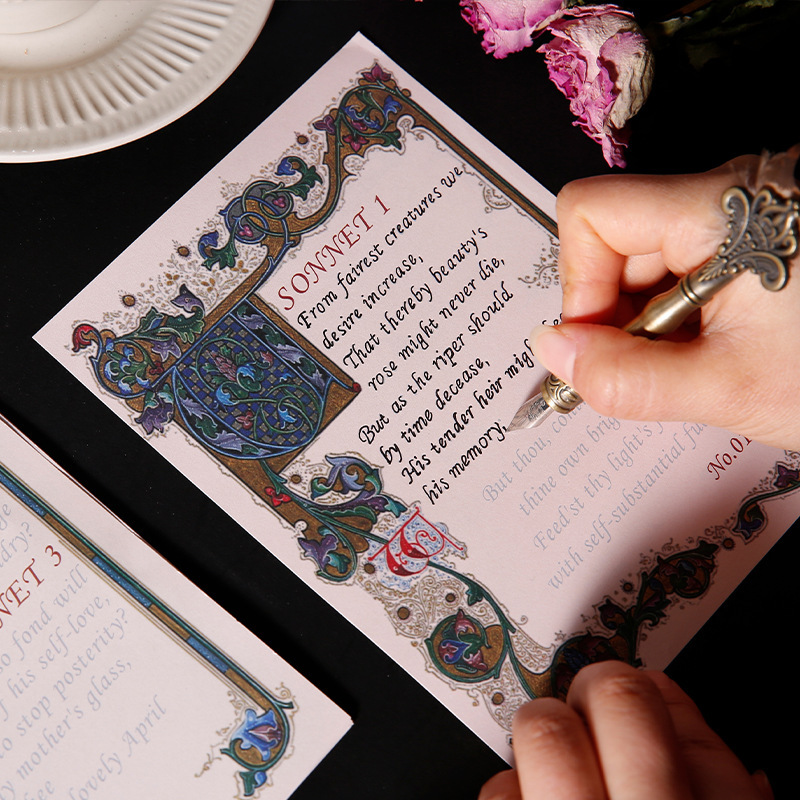 SONNET 1
From fairest creatures we
desire increase,
That thereby beauty's
rose might never die,
But as the riper should
by time decease,
His tender heir might
his memory,
But thou,
thine own
Feed'st thy light's
with self-substantial
No.01
NET 3
fond will
his self-love,
to stop posterity?
mother's glass,
lovely April